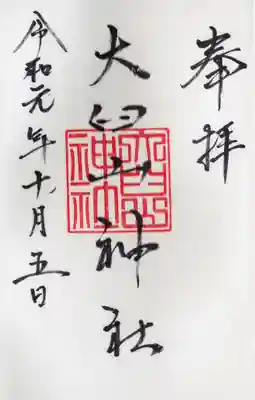 奉拝
大 神社
令和元年十月五日